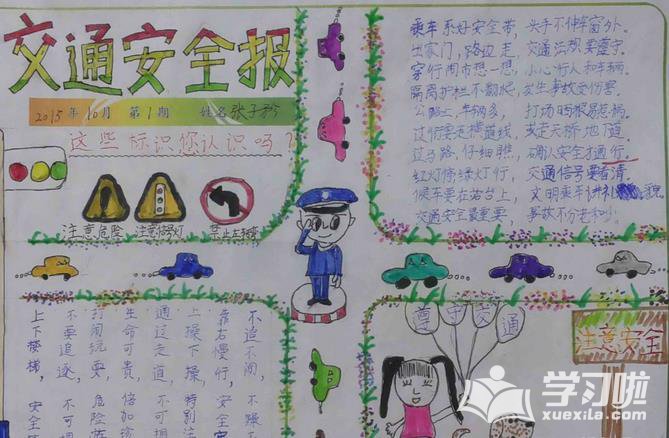 交通安全报
2015年10月 第1期 姓名 张子矜
这些标识您认识吗?
注意危险 注意信号灯 禁止左转弯
乘车系好安全带,头手不伸车窗外。
出家门,路边走,交通法规要遵守。
穿行闹市想一想,小心行人和车辆。
隔离护栏不翻爬,发生事故受伤害。
公路上,车辆多,打场晒粮易惹祸。
过街要走横道线,或走天桥地下道。
过马路,仔细瞧,确认安全才通行。
红灯停绿灯行,交通信号要看清。
候车要在站台上,文明乘车讲礼貌
交通安全最重要,事故不分老和少。
尊守交通
注意安全
不追不闹,
靠右慢行,安全
上操下操,特别注
通过走道,不可拥
生命可贵,倍加
打闹玩耍,危险
不要追逐,不可
上下楼梯,安全
学习啦
xuexila.com